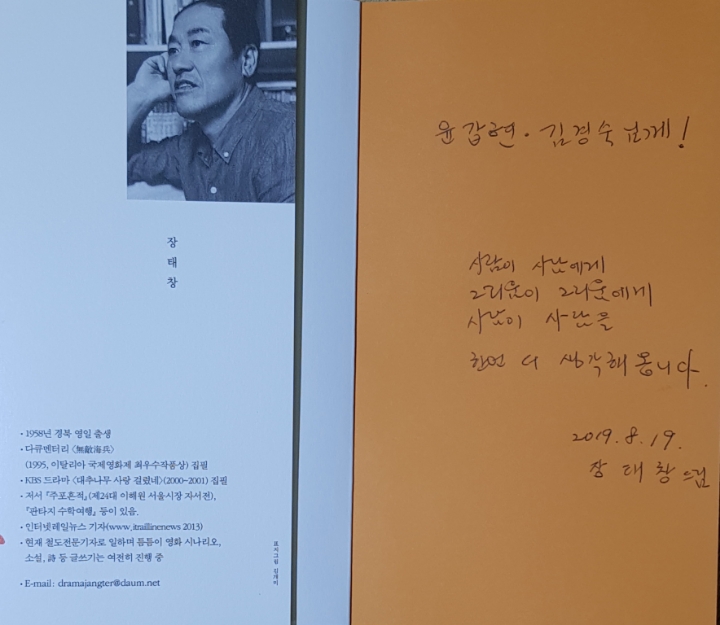 장
태
창
• 1958년 경북 영일 출생
• 다큐멘터리 〈無敵海兵〉
(1995, 이탈리아 국제영화제 최우수작품상) 집필
• KBS 드라마 〈대추나무 사랑 걸렸네〉(2000~2001) 집필
• 저서 『주포흔적』(제24대 이해원 서울시장 자서전),
『판타지 수학여행』 등이 있음.
• 인터넷레일뉴스 기자(www.itraillinenews 2013)
• 현재 철도전문기자로 일하며 틈틈이 영화 시나리오,
소설, 詩 등 글쓰기는 여전히 진행 중
• E-mail : dramajangter@daum.net
표지그림 김개미
윤갑현 · 김경숙 님께!
사람이 사람에게
그리움이 그리움에게
사람이 사람을
한번 더 생각해 봅니다.
2019. 8. 19.
장태창 드림